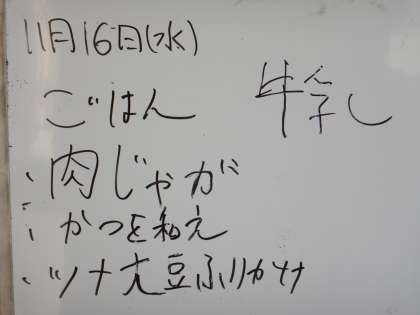 11月16日(水)
ごはん 牛乳
・肉じゃが
・かつを和え
・ツナ大豆ふりかけ